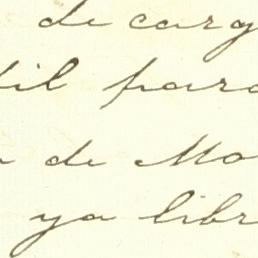 de carg
til para
de Mo
ya libr